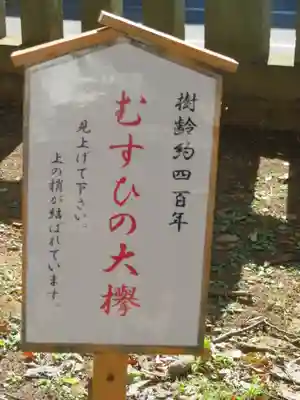 樹齢約四百年
むすひの大欅
見上げて下さい。
上の梢が結ばれています。